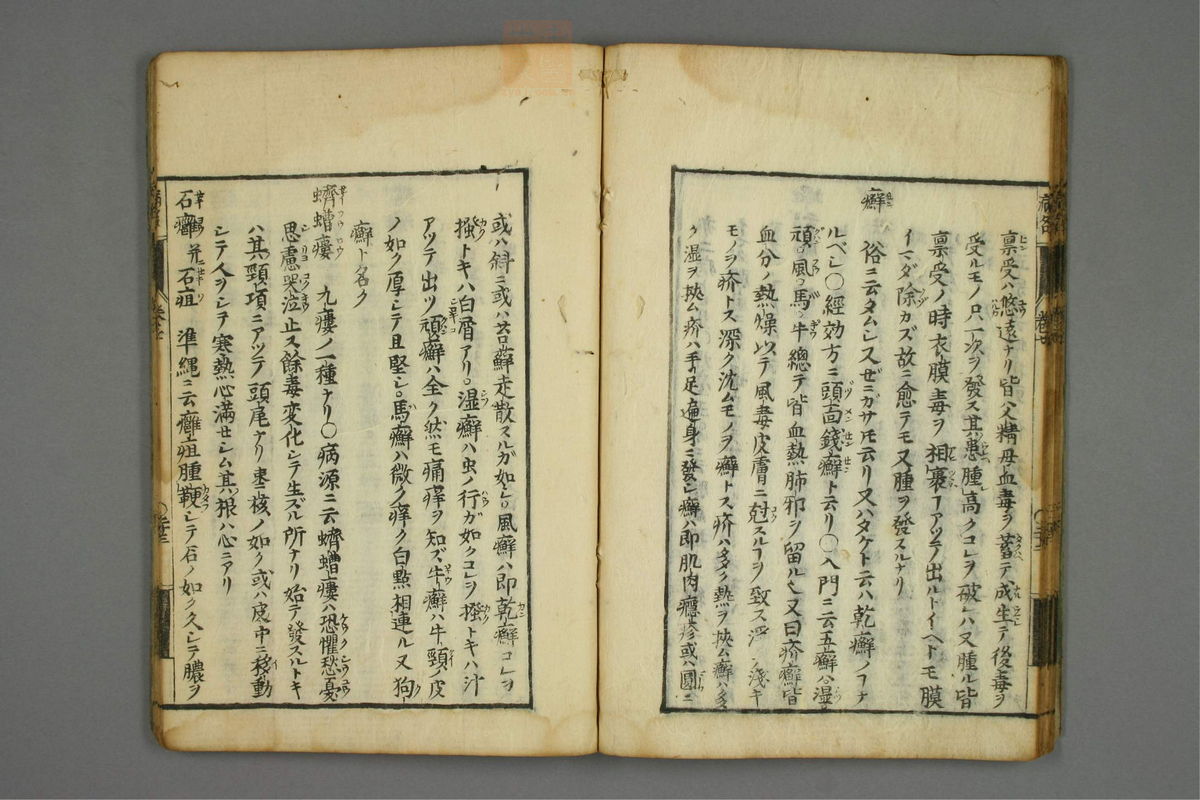 禀受ハ悠遠ナリ皆父精母血毒ヲ蓄テ成生テ後毒ヲ
受ルモノ只一次ヲ發ス其患腫高クコレヲ破レハ又腫ル皆
禀受ノ時衣膜毒ヲ相裹フアツテ出ルトイヘトモ膜
イマダ除カズ故ニ愈テモ又腫ヲ發スルナリ
癬
俗ニ云タムシ又ゼニガサ云リ又ハタケト云ハ乾癬ノ
ルベシ〇經効方ニ頭面錢癬ト云リ〇入門ニ云五癬ハ湿
頑風馬牛總テ皆血熱肺邪ヲ留ル又曰疥癬皆
血分ノ熱燥以テ風毒皮膚ニ尅スルヲ致ス浮浅キ
モノヲ疥トス深ク沈ムモノヲ癬トス疥ハ多ク熱ヲ挾ム癬ハ多
ク湿ヲ挾ム疥ハ手足遍身ニ發シ癬ハ即肌肉癮疹或ハ圓ニ
或ハ斜ニ或ハ苔蘚走散スルガ如シ風癬ハ即乾癬コレヲ
搔トキハ白屑アリ湿癬ハ虫ノ行ガ如クコレヲ搔トキハ汁
アツテ出ツ頑癬ハ全ク然モ痛痒ヲ知ズ牛癬ハ牛頸ノ皮
ノ如ク厚シテ且堅シ馬癬ハ微ク痒ク白點相連ル又狗
癬ト名ク
蠐螬瘻 九瘻ノ一種ナリ〇病源ニ云蠐螬瘻ハ恐懼愁憂
思慮哭泣止ス餘毒変化シテ生ズル所ナリ始テ發スルトキ
ハ其頸項ニアツテ頭尾ナリ棗核ノ如ク或ハ皮中ニ移動
シテ人ヲシテ寒熱心滿セシム其根ハ心ニアリ
石癰 并石疽 準縄ニ云癰疽腫鞕シテ石ノ如ク久シテ膿ヲ